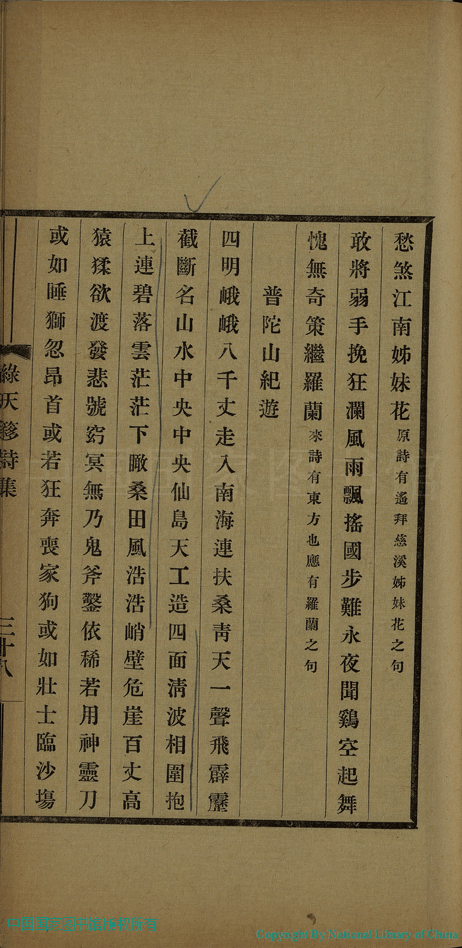 愁煞江南姊妹花原詩有遙拜慈溪姊妹花之句
敢將弱手挽狂瀾風雨飄搖國步難永夜聞鷄空起舞
愧無奇策繼羅蘭來詩有東方也應有羅蘭之句
普陀山紀遊
四明峨峨八千丈走入南海連扶桑靑天一聲飛霹靂
截斷名山水中央中央仙島天工造四面淸波相圍抱
上連碧落雲茫茫下瞰桑田風浩浩峭壁危崖百丈高
猿猱欲渡發悲號窈冥無乃鬼斧鑿依稀若用神靈刀
或如睡獅忽昂首或若狂奔喪家狗或如壯士臨沙塲
綠天簃詩集
三十八
Copyright By National Library of China